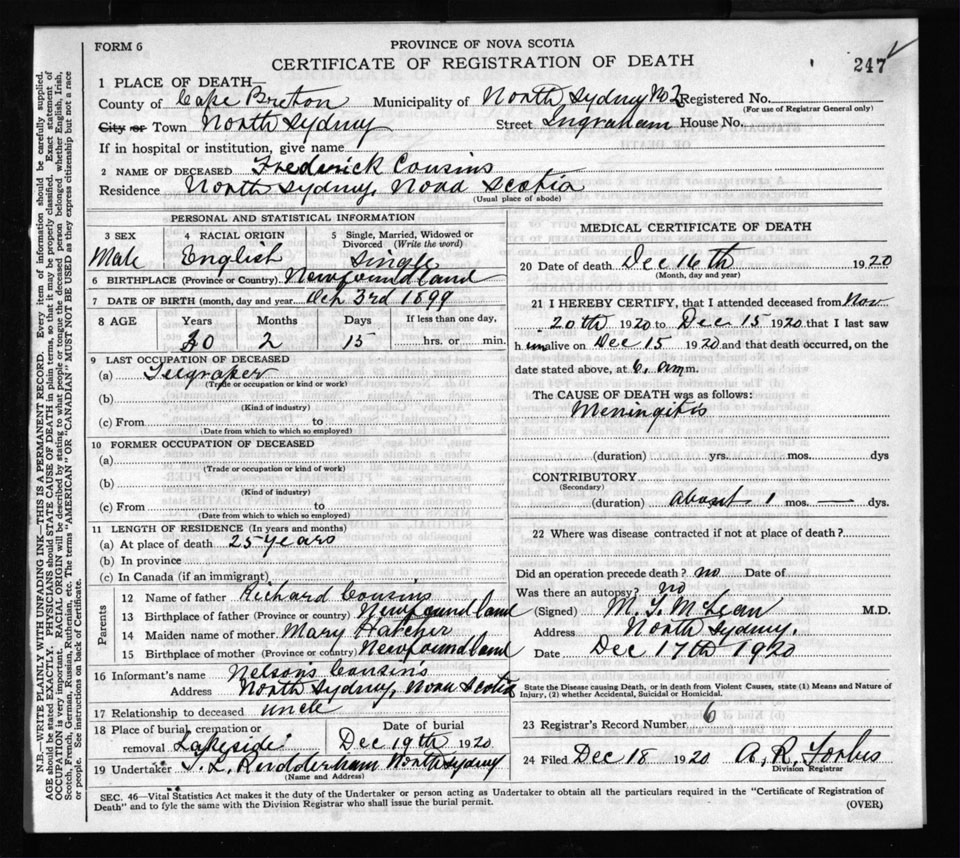 FORM 6
PROVINCE OF NOVA SCOTIA
CERTIFICATE OF REGISTRATION OF DEATH
247
1 PLACE OF DEATH—
County of Cape Breton Municipality of North Sydney No 2 Registered No.
(For use of Registrar General only)
City or Town North Sydney Street Ingraham House No.
If in hospital or institution, give name
2 NAME OF DECEASED Frederick Cousins
Residence North Sydney, Nova Scotia
(Usual place of abode)
PERSONAL AND STATISTICAL INFORMATION
3 SEX 4 RACIAL ORIGIN 5 Single, Married, Widowed or Divorced (Write the word)
Male English Single
6 BIRTHPLACE (Province or Country) Newfoundland
7 DATE OF BIRTH (month, day and year) 3rd 1899
8 AGE Years Months Days If less than one day,
2 15 hrs. or min.
9 LAST OCCUPATION OF DECEASED
(a)
(Trade or occupation or kind or work)
(b)
(Kind of industry)
(c) From to
(Date from which to which so employed)
10 FORMER OCCUPATION OF DECEASED
(a)
(Trade or occupation or kind of work)
(b)
(Kind of industry)
(c) From to
(Date from which to which so employed)
11 LENGTH OF RESIDENCE (In years and months)
(a) At place of death 25 years
(b) In province
(c) In Canada (if an immigrant)
Parents
12 Name of father Richard Cousins
13 Birthplace of father (Province or country) Newfoundland
14 Maiden name of mother Mary Hatcher
15 Birthplace of mother (Province or country) Newfoundland
16 Informant's name Nelson Cousins
Address North Sydney, Nova Scotia
17 Relationship to deceased uncle
18 Place of burial, cremation or removal Lakeside Date of burial Dec 19th 1920
19 Undertaker North Sydney
(Name and Address)
MEDICAL CERTIFICATE OF DEATH
20 Date of death Dec 16th 1920
(Month, day and year)
21 I HEREBY CERTIFY, that I attended deceased from Nov
20th 1920 to Dec 15 1920 that I last saw
h im alive on Dec 15 1920 and that death occurred, on the
date stated above, at 6. am m.
The CAUSE OF DEATH was as follows:
Meningitis
(duration) yrs. mos. dys
CONTRIBUTORY
(Secondary)
(duration) about 1 mos. — dys.
22 Where was disease contracted if not at place of death?
Did an operation precede death? no Date of
Was there an autopsy? no
(Signed) McLean M.D.
Address North Sydney.
Date Dec 17th 1920
State the Disease causing Death, or in death from Violent Causes, state (1) Means and Nature of
Injury, (2) whether Accidental, Suicidal or Homicidal.
23 Registrar's Record Number 6
24 Filed Dec 18 1920 A. R. Forbes
Division Registrar
SEC. 46—Vital Statistics Act makes it the duty of the Undertaker or person acting as Undertaker to obtain all the particulars required in the "Certificate of Registration of
Death" and to fyle the same with the Division Registrar who shall issue the burial permit.
(OVER)
N.B.—WRITE PLAINLY WITH UNFADING INK—THIS IS A PERMANENT RECORD. Every item of information should be carefully supplied.
AGE should be stated EXACTLY. PHYSICIANS should STATE CAUSE OF DEATH in plain terms, so that it may be properly classified. Exact statement of
OCCUPATION is very important. RACIAL ORIGIN will be described by stating to what people or tongue the deceased person belonged, whether English, Irish,
Scotch, French, German, Russian, Ruthenian, etc. The terms "AMERICAN" OR "CANADIAN" MUST NOT BE USED as they express citizenship but not a race
or people. See instructions on back of Certificate.